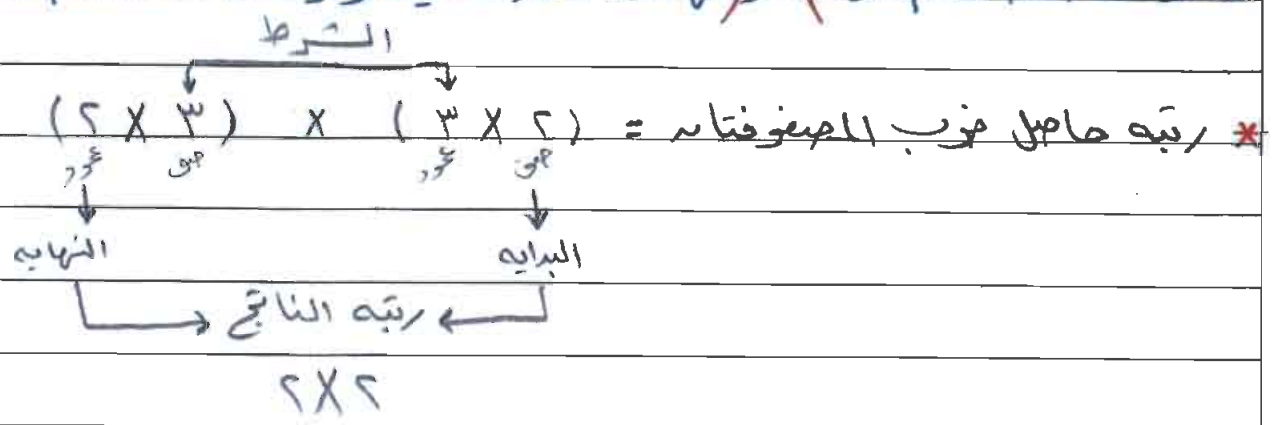 الشرط
* رتبه حاصل ضرب المصفوفتان = (٢ X ٣) X (٣ X ٢)
صف عمود صف عمود
البدايه النهايه
رتبه الناتج
٢X٢